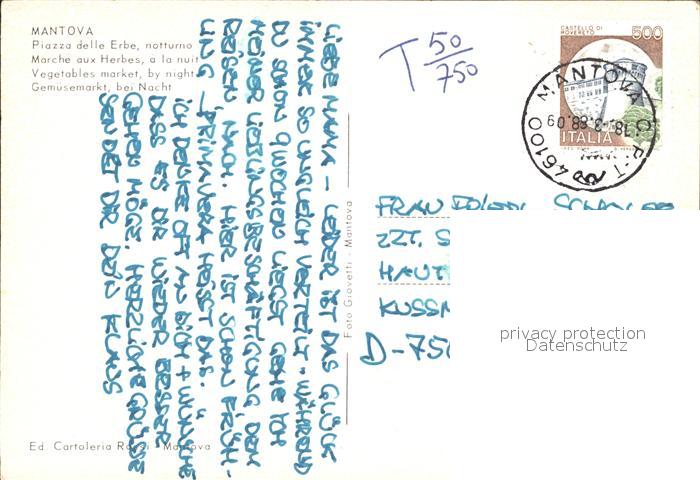 MANTOVA
Piazza delle Erbe, notturno
Marche aux Herbes, a la nuit
Vegetables market, by night
Gemüsemarkt, bei Nacht
T 50/750
CASTELLO DI
ROVERETO
500
ITALIA
MANTOVA C.P.-T.
18.-3.88.09
46100
LIEBE MAMA – LEIDER IST DAS GLÜCK
IMMER SO UNGLEICH VERTEILT – WÄHREND
DU SCHON WOCHEN LIEGST GEHE ICH
MEINER LIEBLINGSBESCHÄFTIGUNG, DEM
REISEN NACH. HIER IST SCHON FRÜH-
LING – PRIMAVERA HEISST DAS.
ICH DENKE OFT AN DICH + WÜNSCHE
DASS ES DIR WIEDER BESSER
GEHEN MÖGE. HERZLICHE GRÜSSE
SENDET DIR DEIN KLAUS
Foto Giovetti - Mantova
FRAU
ZZT. S
HAUT
KUSSM
D-750
privacy protection
Datenschutz
Ed. Cartoleria Rossi - Mantova